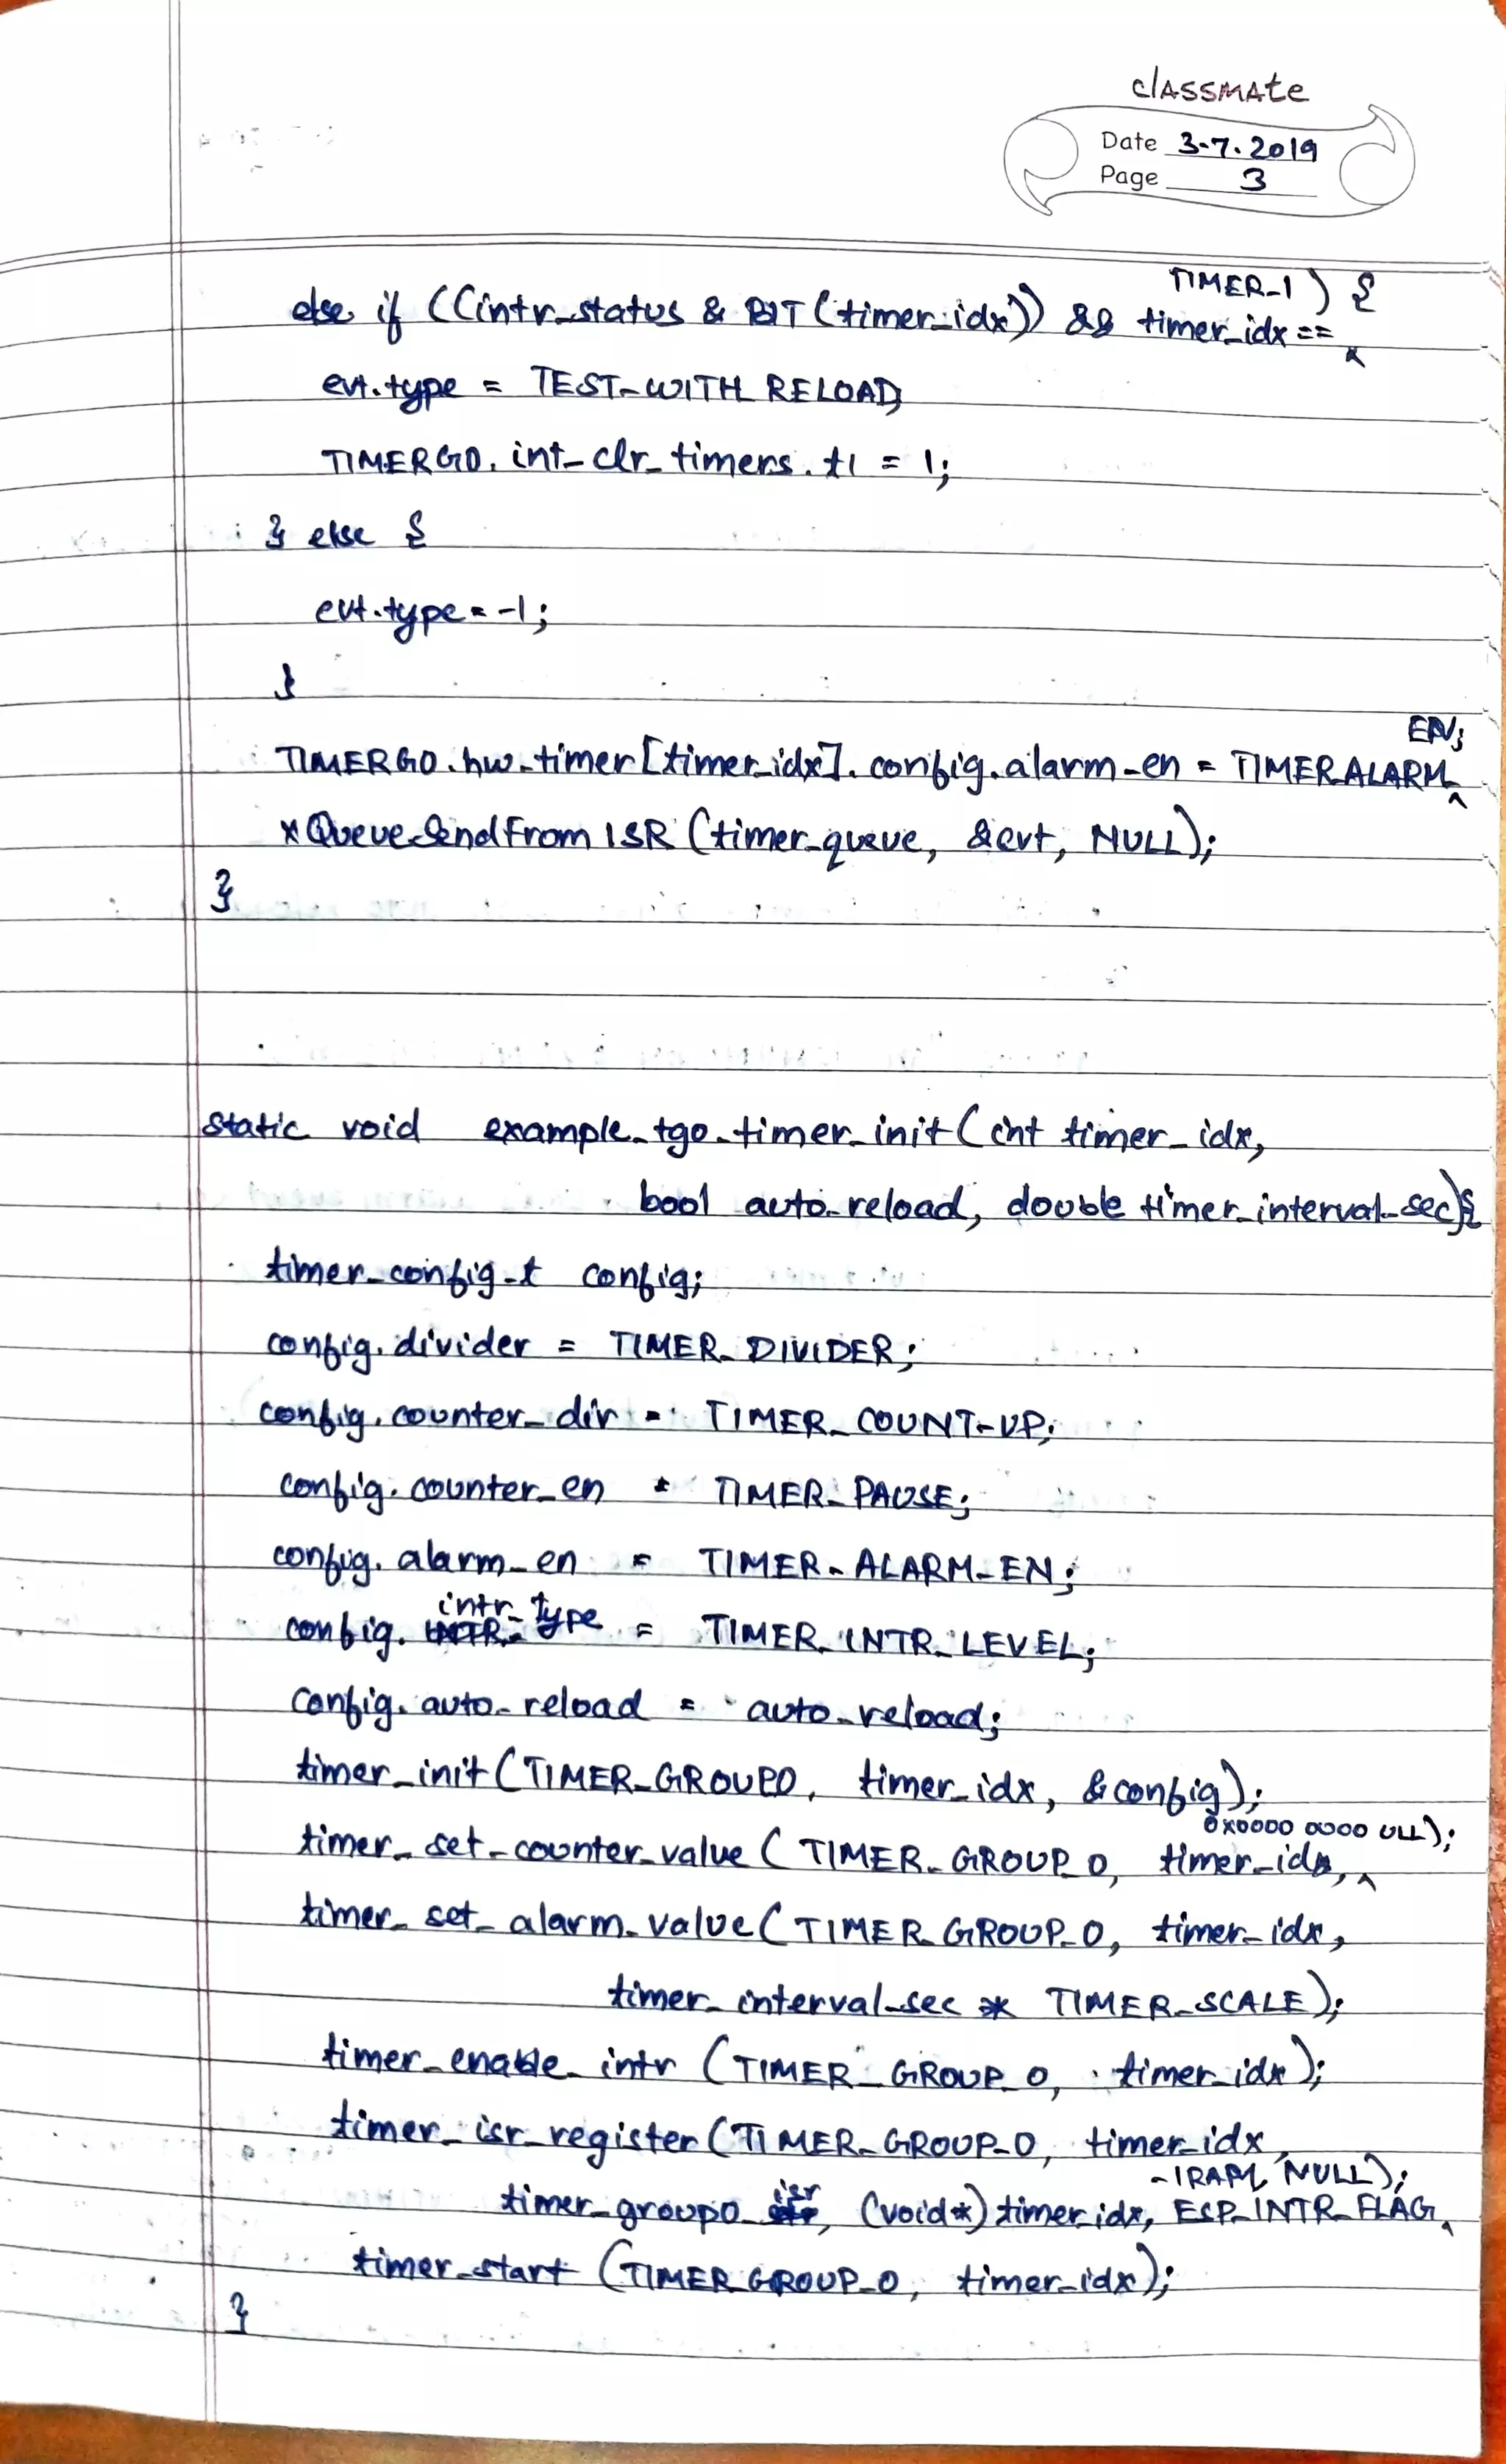 classmate
Date 3-7.2019
Page 3
else if ((intr_status & BIT(timer_idx)) && timer_idx == TIMER_1) {
evt.type = TEST_WITH_RELOAD;
TIMERG0.int_clr_timers.t1 = 1;
} else {
evt.type = -1;
}
TIMERG0.hw_timer[timer_idx].config.alarm_en = TIMER_ALARM_EN;
xQueueSendFromISR(timer_queue, &evt, NULL);
}
static void example_tg0_timer_init(int timer_idx,
bool auto_reload, double timer_interval_sec){
timer_config_t config;
config.divider = TIMER_DIVIDER;
config.counter_dir = TIMER_COUNT_UP;
config.counter_en = TIMER_PAUSE;
config.alarm_en = TIMER_ALARM_EN;
config.intr_type = TIMER_INTR_LEVEL;
config.auto_reload = auto_reload;
timer_init(TIMER_GROUP0, timer_idx, &config);
timer_set_counter_value(TIMER_GROUP_0, timer_idx, 0x0000 0000 ULL);
timer_set_alarm_value(TIMER_GROUP_0, timer_idx,
timer_interval_sec * TIMER_SCALE);
timer_enable_intr (TIMER_GROUP_0, timer_idx);
timer_isr_register(TIMER_GROUP_0, timer_idx,
timer_group0_isr, (void*)timer_idx, ESP_INTR_FLAG_IRAM, NULL);
timer_start (TIMER_GROUP_0, timer_idx);
}